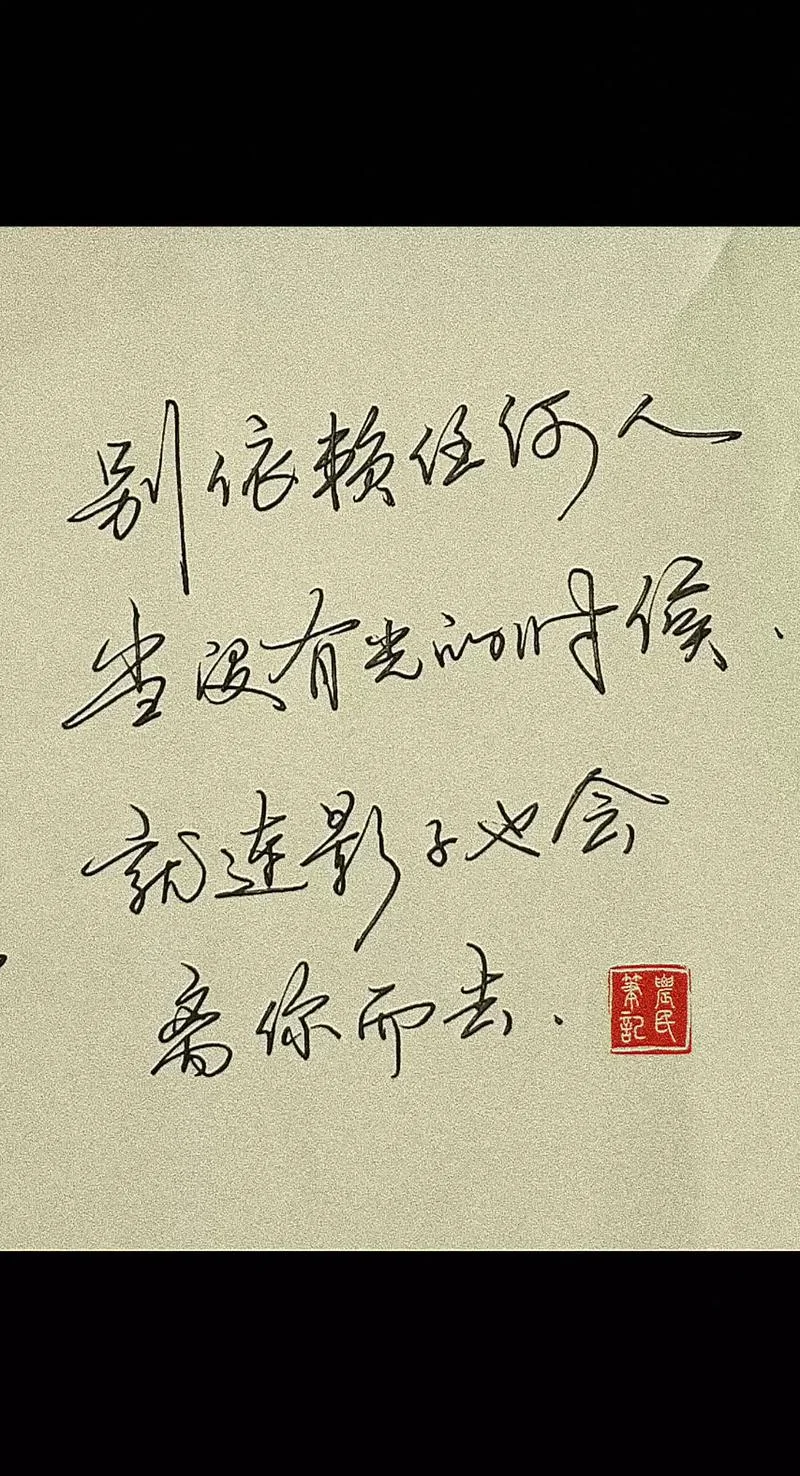 别依赖任何人
当没有光的时候.
就连影子也会
离你而去.
農民
筆記